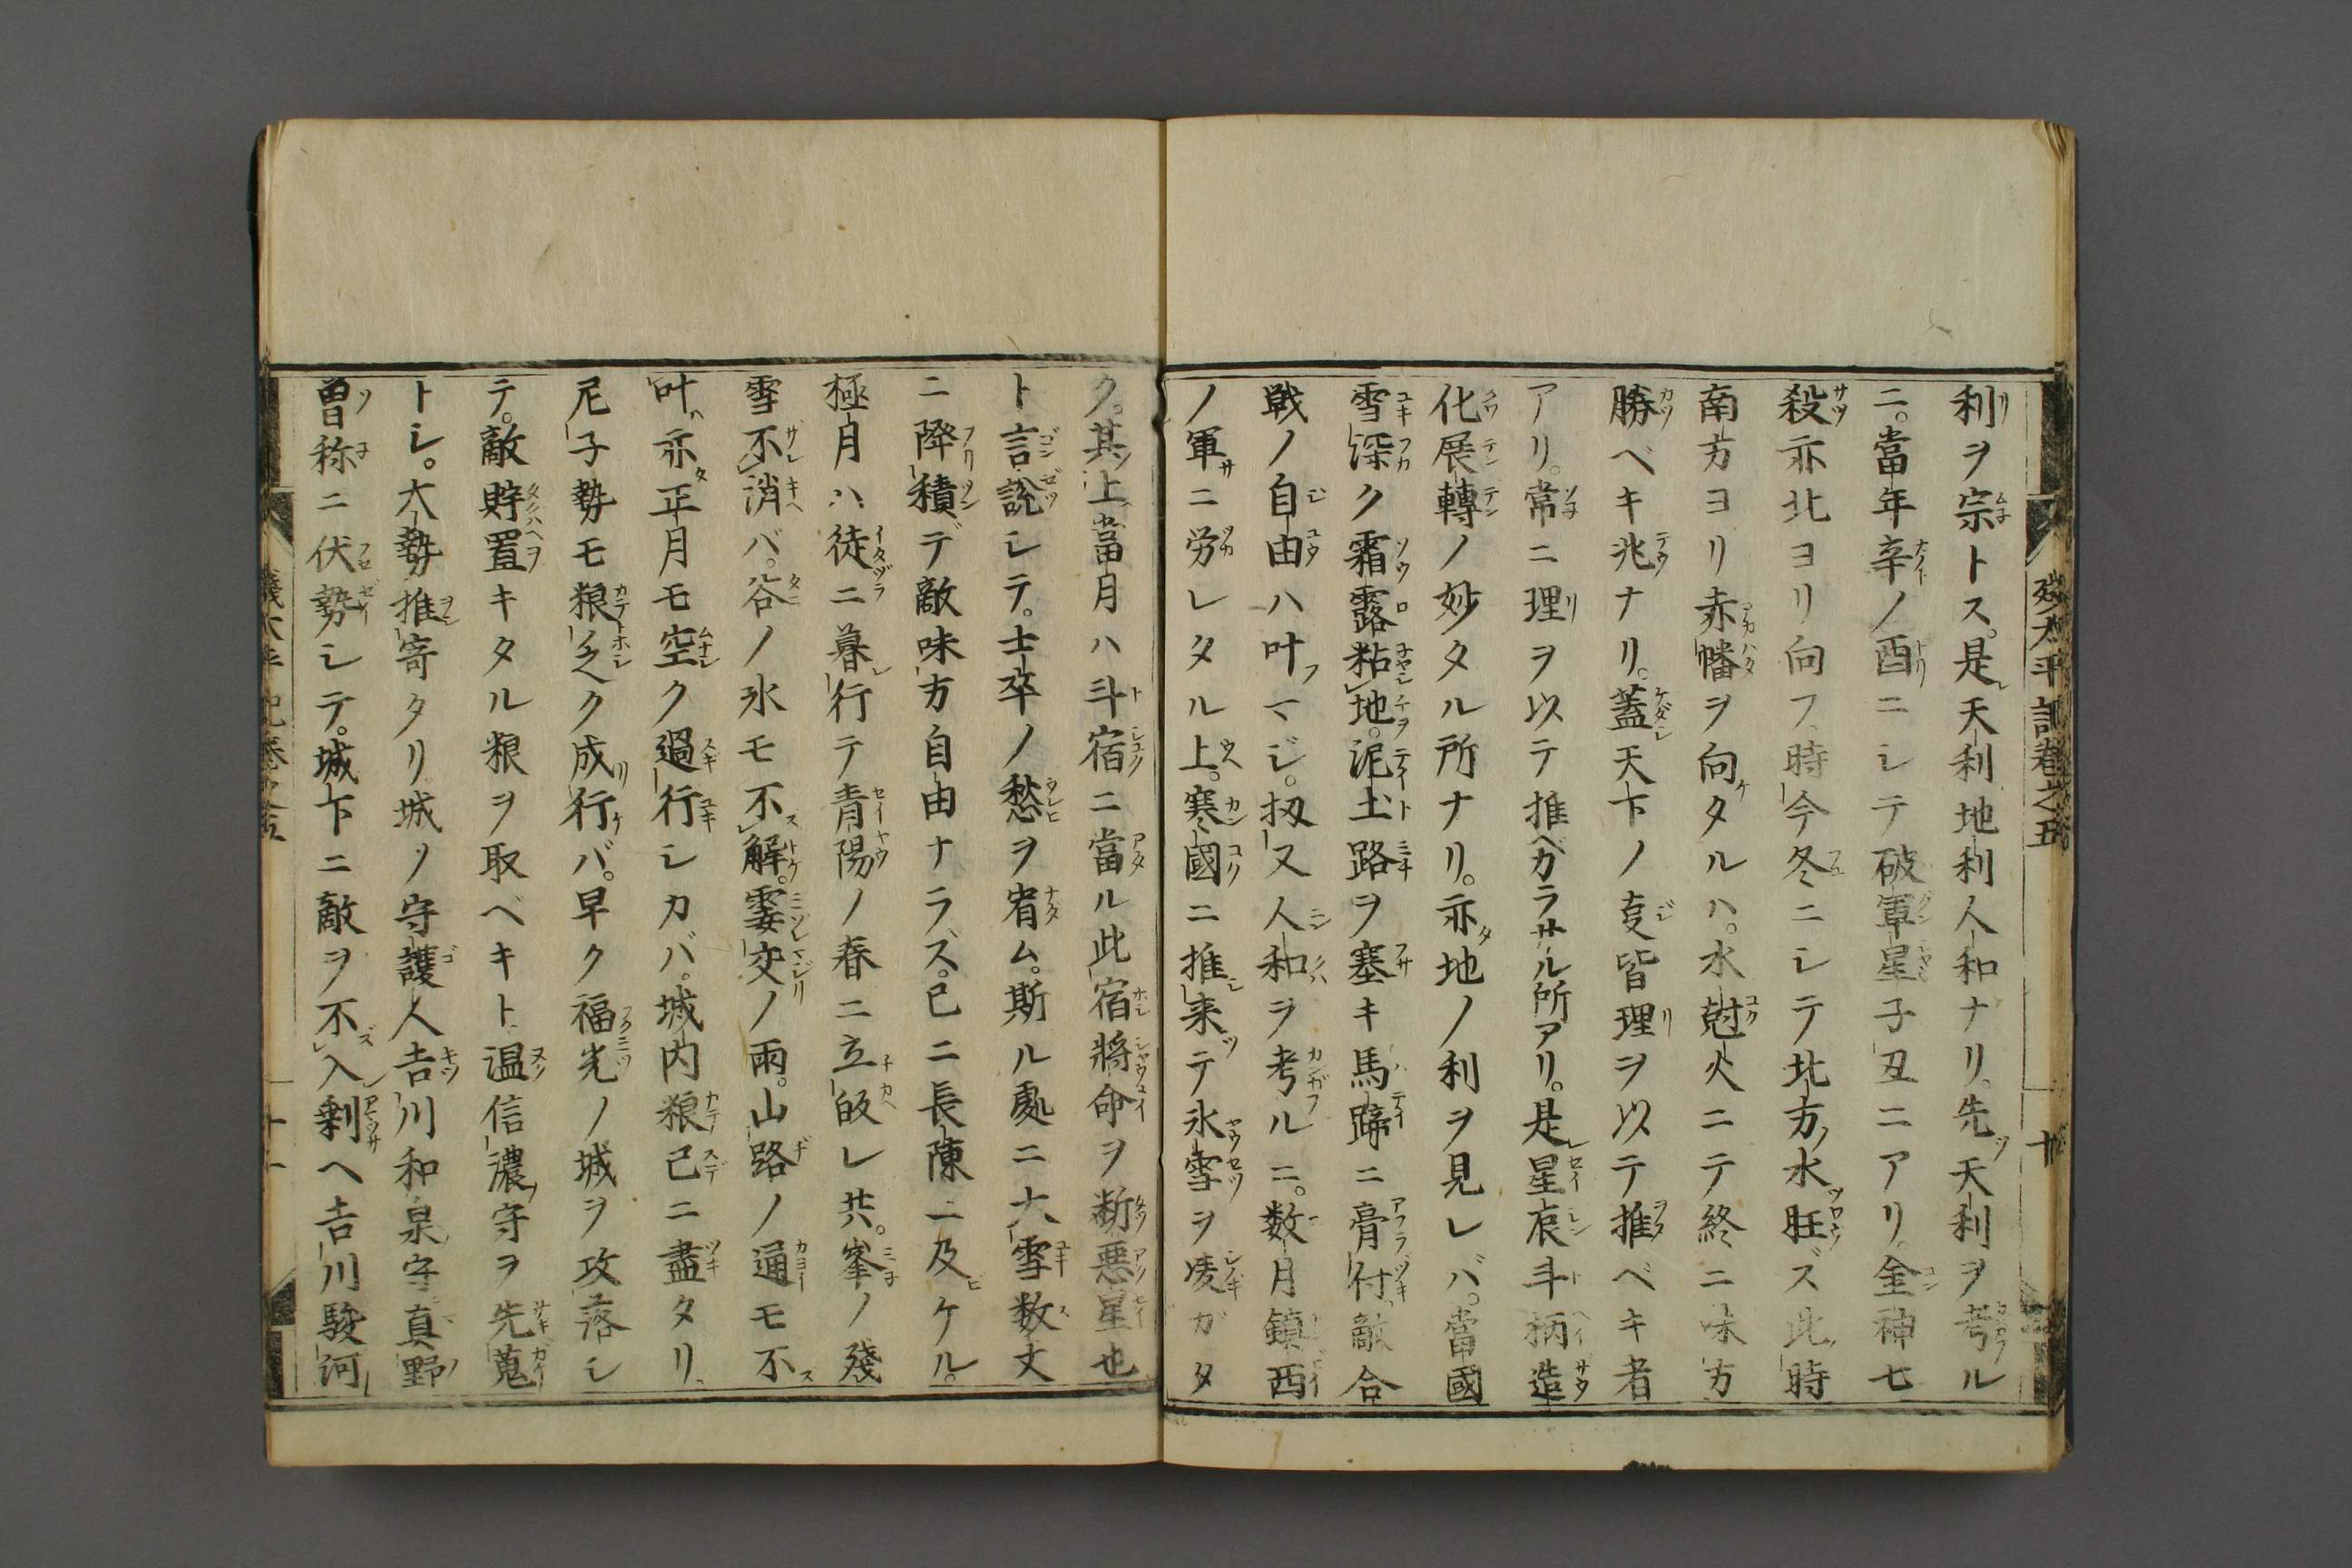 利ヲ宗トス。是天利地利人和ナリ。先天利ヲ考ル
ニ。當年辛ノ酉ニシテ破軍星子丑ニアリ。金神七
殺亦北ヨリ向フ。時今冬ニシテ北方ノ水旺ズ此時
南方ヨリ赤幡ヲ向タルハ。水尅火ニテ終ニ味方
勝ベキ兆ナリ。蓋天下ノ㕝皆理ヲ以テ推ベキ者
アリ。常ニ理ヲ以テ推ベカラサル所アリ。是星辰斗柄造
化展轉ノ妙タル所ナリ。亦地ノ利ヲ見レバ。當國
雪深ク霜露粘地。泥土路ヲ塞キ馬蹄ニ膏付敵合
戦ノ自由ハ叶マジ。扨又人和ヲ考ルニ。数月鎮西
ノ軍ニ労レタル上。寒國ニ推来テ氷雪ヲ凌ガタ
ク。其上當月ハ斗宿ニ當ル此宿將命ヲ断悪星也
ト言説シテ。士卒ノ愁ヲ宥ム。斯ル處ニ大雪数丈
ニ降積デ敵味方自由ナラズ。已ニ長陳ニ及ケル。
極月ハ徒ニ暮行テ青陽ノ春ニ立皈レ共。峯ノ殘
雪不消バ。谷ノ氷モ不解。霎交ノ雨。山路ノ通モ不
叶亦正月モ空ク過行シカバ。城内粮已ニ盡タリ。
尼子勢モ粮乏ク成行バ。早ク福光ノ城ヲ攻落シ
テ。敵貯置キタル粮ヲ取ベキト。温信濃守ヲ先蒐
トシ。大勢推寄タリ。城ノ守護人吉川和泉守真野
曽称ニ伏勢シテ。城下ニ敵ヲ不入剰ヘ吉川駿河
残太平記巻之五
十
残太平記巻之五
十一